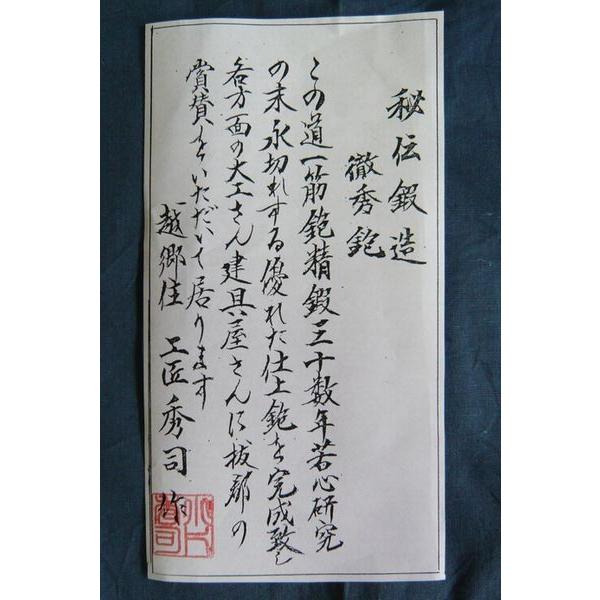 秘伝鍛造
徹秀鉋
この道一筋鉋精鍛三十数年苦心研究
の末永切れする優れた仕上鉋を完成致し
各方面の大工さん建具屋さんに抜群の
賞賛をいただいて居ります
越郷住 工匠秀司作